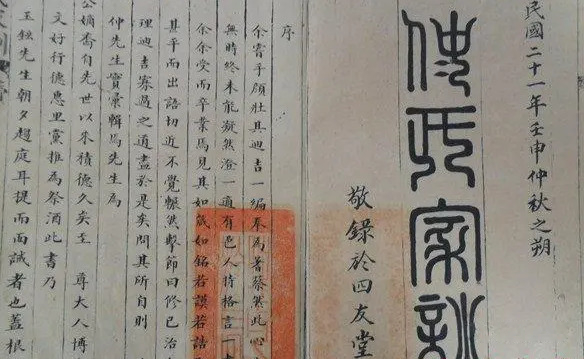 民國二十一年壬申仲秋之朔
何氏家訓
敬錄於四友堂
序
余嘗手顧壯其迪吉一編奉為蓍蔡然此心
無時終未能凝然澄一適有邑人時格言一
余余受而卒業焉見其如箴如銘若謨若誥
甚平而出語切近不覺輾然擊節曰修已治
理迪吉寡過之道盡於是矣問其所自則
仲先生實彙輯焉先生為
公嫡裔自先世以朱積德久矣至 尊大人博
文好行德惠里黨推為祭酒此書乃
玉鉉先生朝夕趨庭耳提而面誡者也蓋根